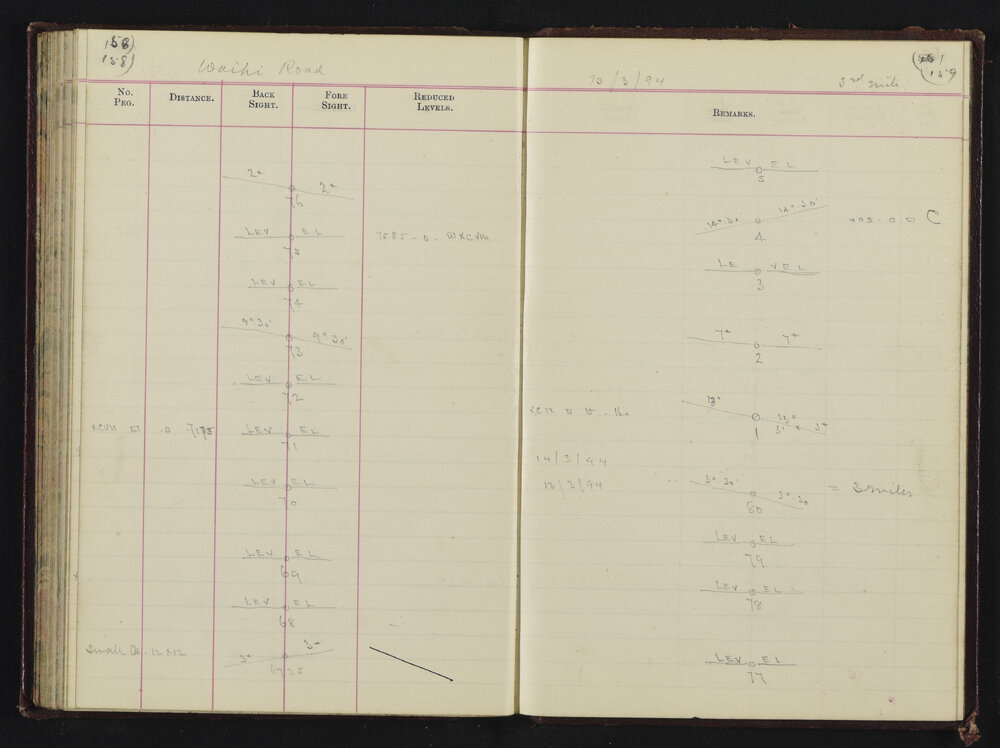 158)
158)
Waihi Road
No. Peg. Distance. Back Sight. Fore Sight. Reduced Levels.
2° 2°
76
LEV EL 7585 - 0 - XCVIII
75
LEV EL
74
9°.30' 9°.30'
73
LEV EL
72
XCVII 0 7175 LEV EL
71
LEV EL
70
LEV EL
69
LEV EL
68
Small 12 x 12 3° 3°
6725
159
13/3/94 3rd mile
Remarks.
LEV EL
5
14°.30' 14°.30' 405 - 0 - C
4
LE VEL
3
7° 7°
2
XCIX 13° 13°
1 3' x 3°
14/3/94
13/3/94 3°.30' 3°.30' = 3 miles
80
LEV EL
79
LEV EL
78
LEV EL
77